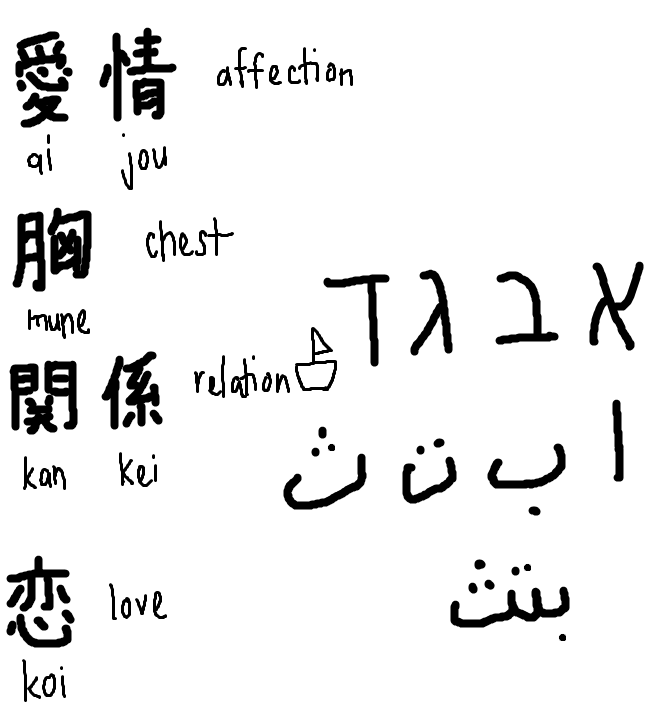 愛情 affection
ai jou
胸 chest
mune
関係 relation
kan kei
恋 love
koi
אבגד
ا ب ت ث
بتث